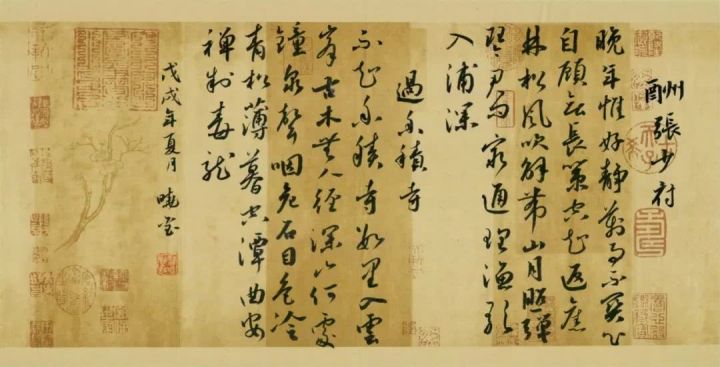 酬張少府
晚年惟好靜萬事不關心
自顧無長策空知返舊
林松風吹解帶山月照彈
琴君問窮通理漁歌
入浦深
過香積寺
不知香積寺數里入雲
峰古木無人徑深山何處
鐘泉聲咽危石日色冷
青松薄暮空潭曲安
禪制毒龍
戊戌年夏月 曉